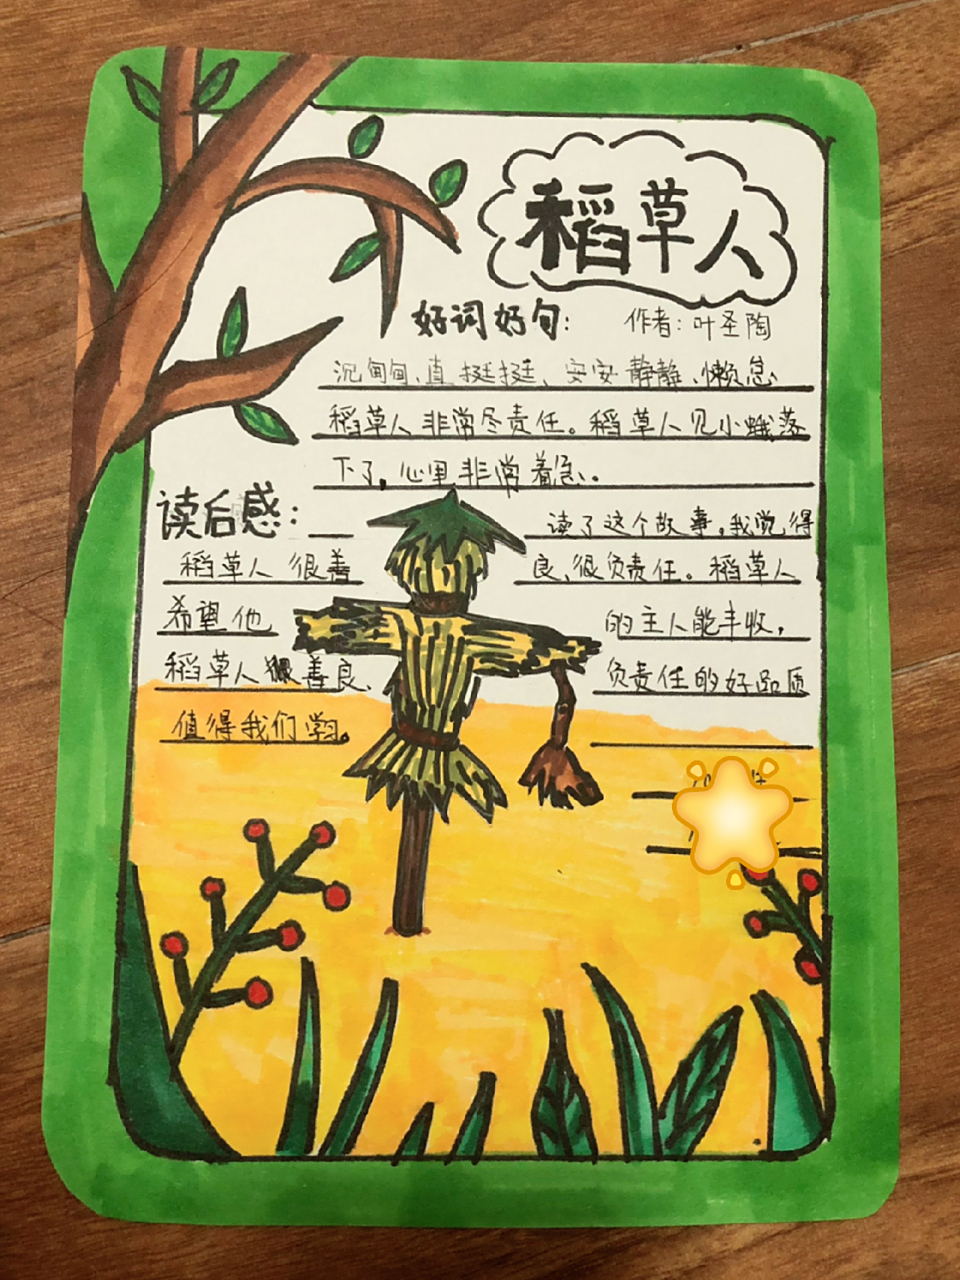 稻草人
好词好句：
作者：叶圣陶
沉甸甸、直挺挺、安安静静、懒怠
稻草人非常尽责任。稻草人见小蛾落
下了，心里非常着急。
读后感：
读了这个故事，我觉得
稻草人很善良、很负责任。稻草人
希望他的主人能丰收，
稻草人狠善良、负责任的好品质
值得我们学习。